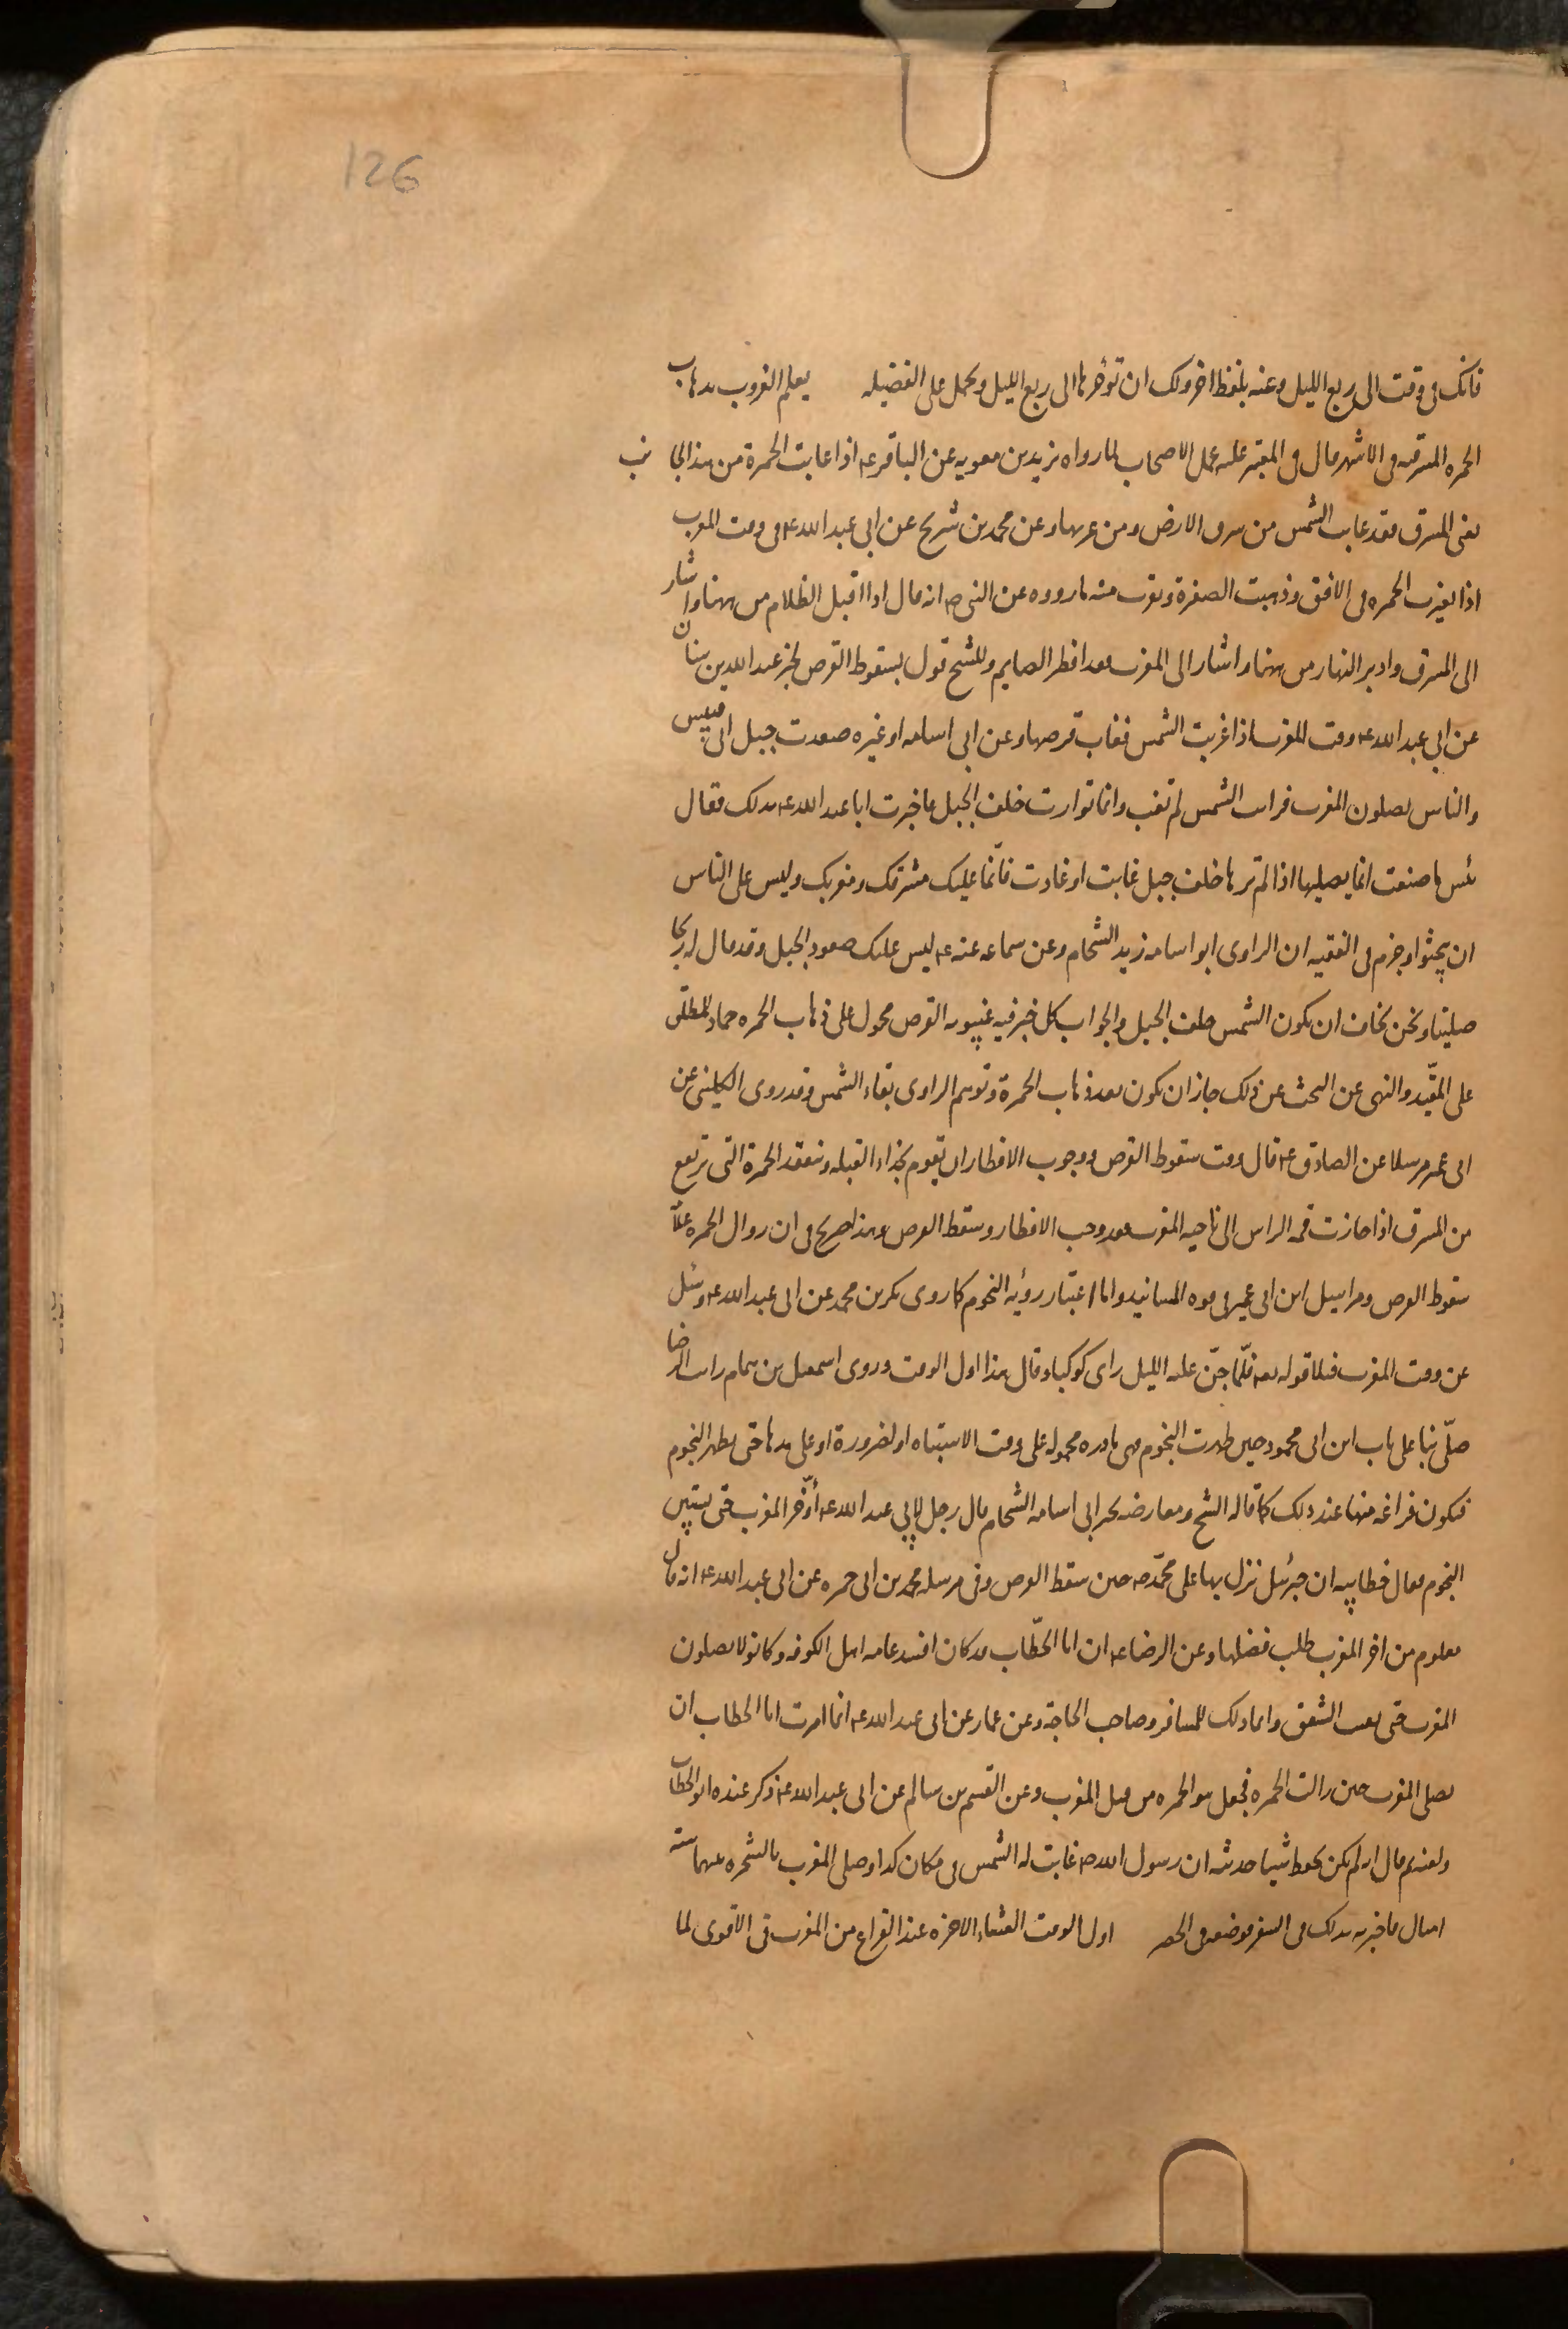 126
فانك في وقت الى ربع الليل وعنه بلفظ اخر ولك ان تؤخرها الى ربع الليل ويحمل على الفضيله يعلم الغروب بذهاب
الحمره المشرقيه في الاشهر قال في المعتبر عليه عمل الاصحاب لما رواه بريد بن معويه عن الباقر ع اذا غابت الحمرة من هذا الجانب
يعني المشرق فقد غابت الشمس من شرق الارض ومن غربها وعن محمد بن شريح عن ابي عبد الله ع في وقت المغرب
اذا تغيرت الحمره في الافق وذهبت الصفرة وقرب منه ما رووه عن النبي ص انه قال اذا اقبل الظلام من ههنا واشار
الى المشرق وادبر النهار من ههنا واشار الى المغرب فقد افطر الصايم وللشيخ قول بسقوط القرص لخبر عبد الله بن سنان
عن ابي عبد الله ع وقت المغرب اذا غربت الشمس فغاب قرصها وعن ابي اسامه او غيره صعدت جبل ابي قبيس
والناس يصلون المغرب فرايت الشمس لم تغب وانما توارت خلف الجبل فاخبرت ابا عبد الله ع بذلك فقال
بئس ما صنعت انما يصليها اذا لم ترها خلف جبل غابت او غارت فانّما عليك مشرقك ومغربك وليس على الناس
ان يبحثوا وجزم في الفقيه ان الراوي ابو اسامه زيد الشحام وعن سماعه عنه ع ليس عليك صعود الجبل وقد قال له ربما
صلينا ونحن نخاف ان تكون الشمس خلف الجبل والجواب كل خبر فيه غيبوبه القرص محمول على ذهاب الحمره حملا للمطلق
على المقيّد والنهي عن البحث عن ذلك جاز ان يكون بعد ذهاب الحمرة وتوهم الراوي بقاء الشمس وقد روى الكليني عن
ابن ابي عمير مرسلا عن الصادق ع قال وقت سقوط القرص ووجوب الافطار ان يقوم بحذاء القبله وتتفقد الحمرة التي ترتفع
من المشرق اذا جازت قمه الراس الى ناحيه المغرب فقد وجب الافطار وسقط القرص وهذا صريح في ان زوال الحمره علامة
سقوط القرص ومراسيل ابن ابي عمير في قوه المسانيد واما اعتبار رؤيه النجوم كما روى بكر بن محمد عن ابي عبد الله ع وسئل
عن وقت المغرب فتلا قوله تعالى فلمّا جنّ عليه الليل راى كوكبا وقال هذا اول الوقت وروى اسمعيل بن همام رايت الرضا
صلّى بنا على باب ابن ابي محمود حين ظهرت النجوم فهي نادره محموله على وقت الاشتباه او لضرورة او على مدها حتى يظهر النجوم
فيكون فراغه منها عند ذلك كما قاله الشيخ ومعارضه بخبر ابي اسامه الشحام قال رجل لابي عبد الله ع أؤخّر المغرب حتى يستبين
النجوم فقال خطابيه ان جبرئيل نزل بها على محمّد ص حين سقط القرص وفي مرسله محمد بن ابي حمزه عن ابي عبد الله ع انه قال
ملعون من اخر المغرب طلب فضلها وعن الرضا ع ان ابا الخطّاب قد كان افسد عامه اهل الكوفه وكانوا لا يصلون
المغرب حتى يغيب الشفق وانما ذلك للمسافر وصاحب الحاجة وعن عمار عن ابي عبد الله ع انما امرت ابا الخطاب ان
يصلي المغرب حين زالت الحمره فجعل هو الحمره من قبل المغرب وعن القسم بن سالم عن ابي عبد الله ع وذكر عنده ابو الخطاب
ولعنه ثم قال انه لم يكن يحفظ شيئا حدثته ان رسول الله ص غابت له الشمس في مكان كذا وصلى المغرب بالشجره بينهما ستة
اميال فاخبرته بذلك في السفر فوضعه في الحضر اول الوقت العشاء الاخره عند الفراغ من المغرب في الاقوى لما